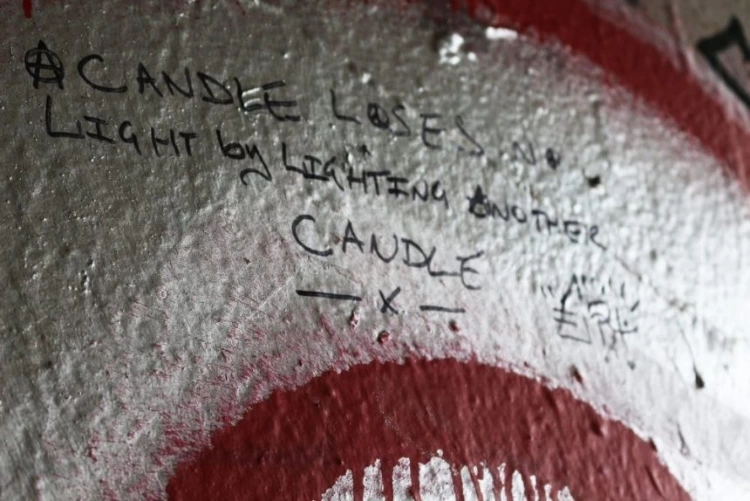 A CANDLE LOSES NO
LIGHT by LIGHTING ANOTHER
CANDLE
— x —